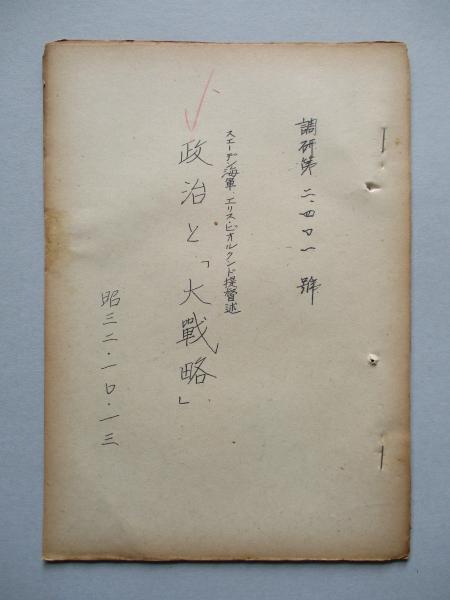 調研第二、四〇一號
スエーデン海軍 エリス・ビオルクンド提督述
政治と「大戰略」
昭三二・一〇・一三